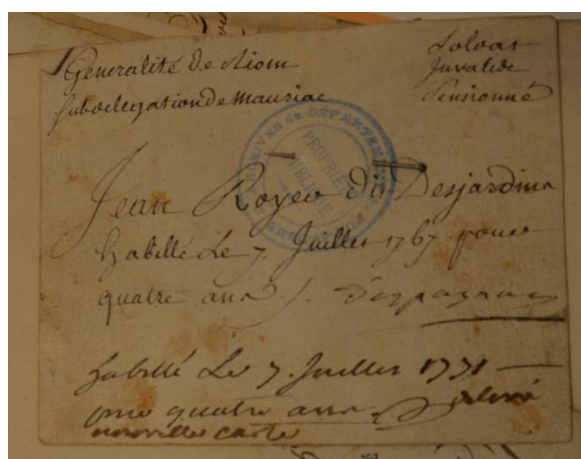 Generalité de Riom
Subdelegation de Mauriac
Soldat
Invalide
Pensionné
ARCHIVES du DÉPARTEMENT
PROPRIÉTÉ
PUBLIQUE
Jean Royer dit Desjardins
habillé Le 7 Juillet 1767 pour
quatre ans
habillé Le 7 Juillet 1771
pour quatre ans
nouvelle carte